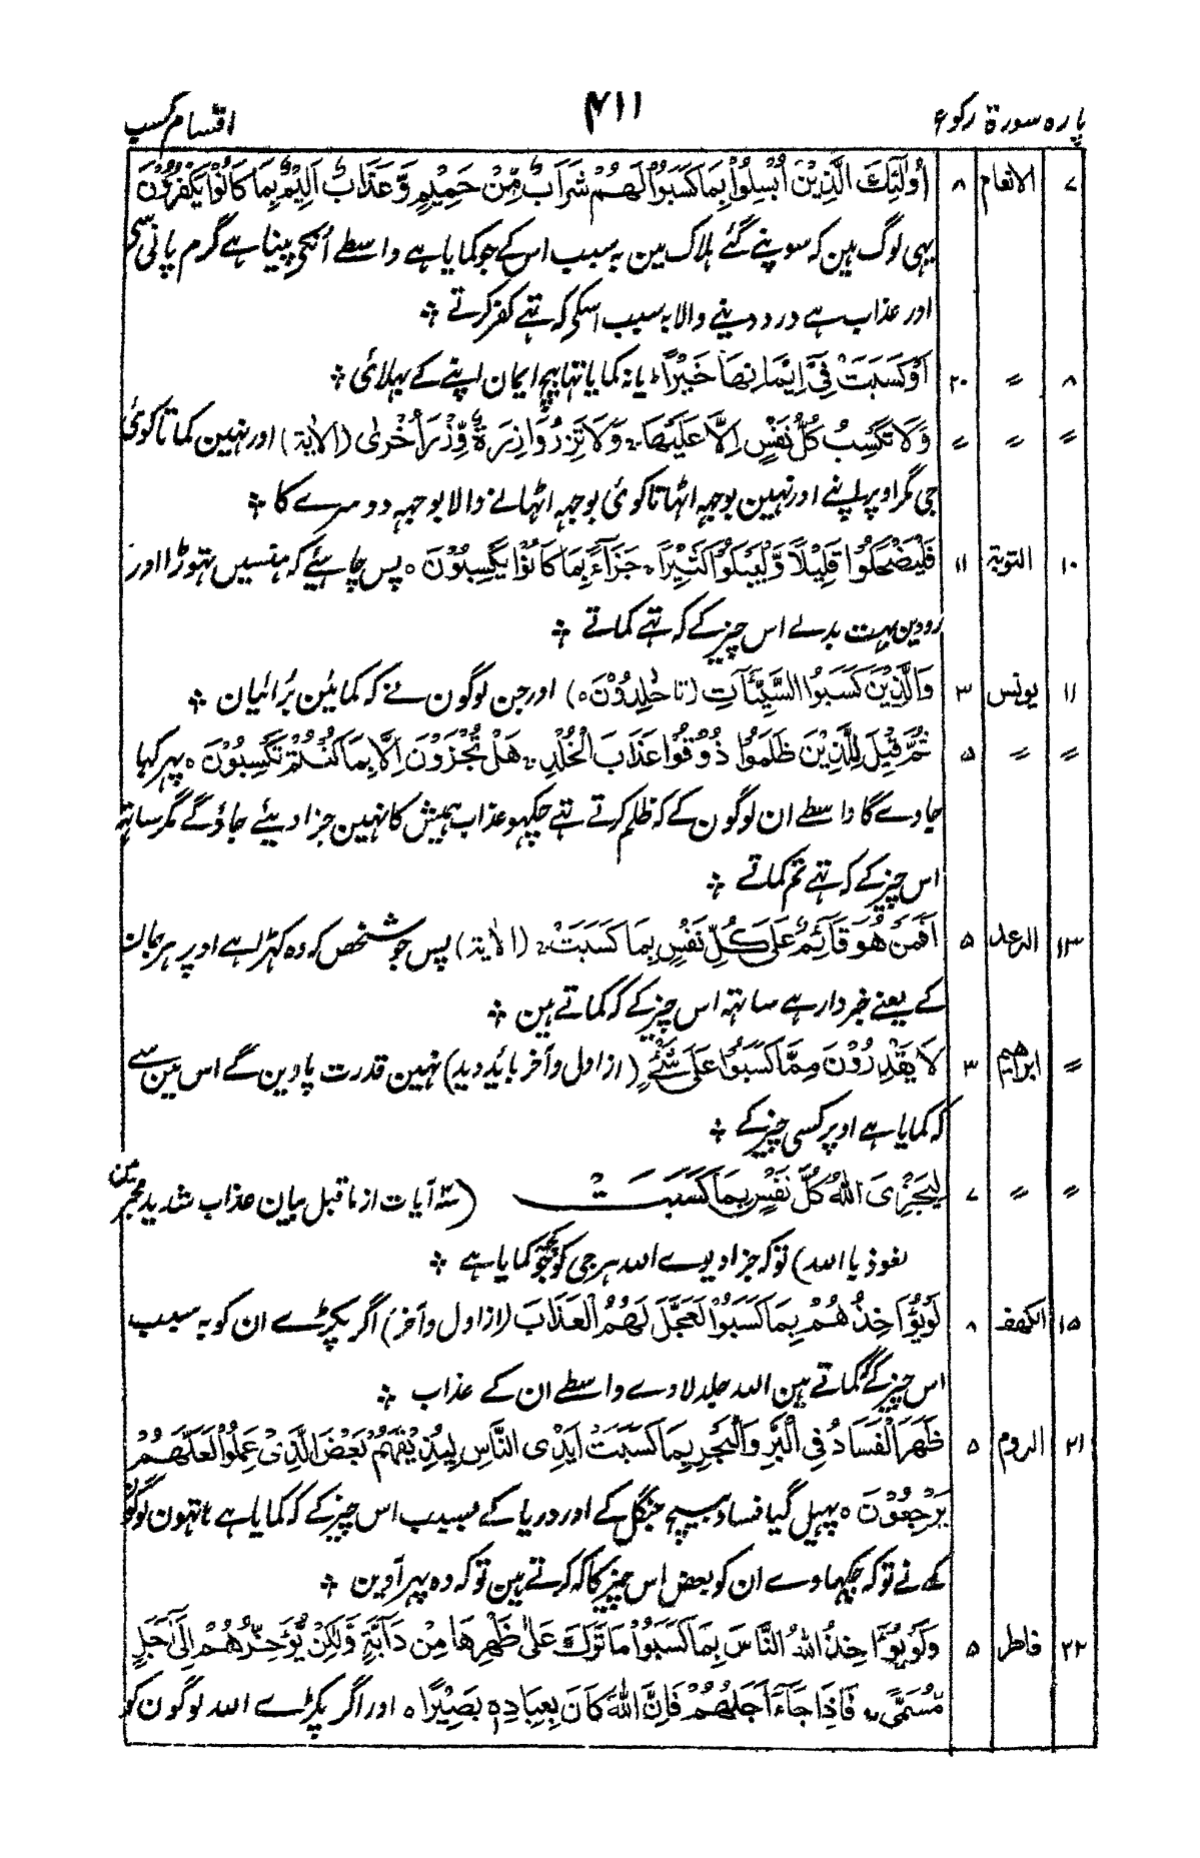 پارہ سورۃ رکوع ۴۱۱ اقسام کسب
۷ الانعام ۸ اُولٰٓئِكَ الَّذِیْنَ اُبْسِلُوْا بِمَا كَسَبُوْا لَهُمْ شَرَابٌ مِّنْ حَمِیْمٍ وَّعَذَابٌ اَلِیْمٌۢ بِمَا كَانُوْا یَكْفُرُوْنَ
یہی لوگ ہین کہ سونپے گئے ہلاک مین بہ سبب اس کے جو کمایا ہے واسطے اُنکی پینا ہے گرم پانی سی
اور عذاب ہے درد دینے والا بہ سبب اسکی کہ تہے کفر کرتے ؞
۸ 〃 ۲۰ اَوْ كَسَبَتْ فِیْٓ اِیْمَانِهَا خَیْرًا ؕ یا نہ کمایا تہا بیچ ایمان اپنے کے بہلائی ؞
〃 〃 〃 وَلَا تَكْسِبُ كُلُّ نَفْسٍ اِلَّا عَلَیْهَا ۚ وَلَا تَزِرُ وَازِرَةٌ وِّزْرَ اُخْرٰی (الایۃ) اور نہین کماتا کوئی
جی مگر اوپر اپنے اور نہین بوجہہ اٹہاتا کوئی بوجہہ اٹہانے والا بوجہہ دوسرے کا ؞
۱۰ التوبۃ ۱۱ فَلْیَضْحَكُوْا قَلِیْلًا وَّلْیَبْكُوْا كَثِیْرًا ۚ جَزَآءًۢ بِمَا كَانُوْا یَكْسِبُوْنَ ہ پس چاہئے کہ ہنسیں تہوڑا اور
رودین بہت بدلے اس چیز کے کہ تہے کماتے ؞
۱۱ یونس ۳ وَالَّذِیْنَ كَسَبُوا السَّیِّئَاٰتِ (تا خٰلِدُوْنَ ہ) اور جن لوگون نے کہ کمائین بُرائیان ؞
〃 〃 ۵ ثُمَّ قِیْلَ لِلَّذِیْنَ ظَلَمُوْا ذُوْقُوْا عَذَابَ الْخُلْدِ ۚ هَلْ تُجْزَوْنَ اِلَّا بِمَا كُنْتُمْ تَكْسِبُوْنَ ہ پہر کہا
جاوے گا واسطے ان لوگون کے کہ ظلم کرتے تہے چکہو عذاب ہمیش کا نہین جزا دیئے جاؤگے مگر ساتہہ
اس چیز کے کہ تہے تم کماتے ؞
۱۳ الرعد ۵ اَفَمَنْ هُوَ قَآئِمٌ عَلٰی كُلِّ نَفْسٍۭ بِمَا كَسَبَتْ ۚ (الایۃ) پس جو شخص کہ وہ کہڑا ہے اوپر ہر جان
کے یعنے خبردار ہے ساتہہ اس چیز کے کہ کماتے ہین ؞
〃 ابراہیم ۳ لَا یَقْدِرُوْنَ مِمَّا كَسَبُوْا عَلٰی شَیْءٍ (از اول و آخر بائد دید) نہین قدرت پاوین گے اس مین سے
کہ کمایا ہے اوپر کسی چیز کے ؞
〃 〃 ۷ لِیَجْزِیَ اللّٰهُ كُلَّ نَفْسٍ بِمَا كَسَبَتْ (سہ آیات از ما قبل بیان عذاب شدید مجرمین
نعوذ باللہ) تو کہ جزا دیوے اللہ ہر جی کو جو کمایا ہے ؞
۱۵ الکہف ۸ لَوْ یُؤَاخِذُهُمْ بِمَا كَسَبُوْا لَعَجَّلَ لَهُمُ الْعَذَابَ (از اول و آخر) اگر پکڑے ان کو بہ سبب
اس چیز کے کہ کماتے ہین البتہ جلد لاوے واسطے ان کے عذاب ؞
۲۱ الروم ۵ ظَهَرَ الْفَسَادُ فِی الْبَرِّ وَالْبَحْرِ بِمَا كَسَبَتْ اَیْدِی النَّاسِ لِیُذِیْقَهُمْ بَعْضَ الَّذِیْ عَمِلُوْا لَعَلَّهُمْ
یَرْجِعُوْنَ ہ پہیل گیا فساد بیچ جنگل کے اور دریا کے بسبب اس چیز کے کہ کمایا ہے ہاتہون لوگون
کے نے تو کہ چکہاوے ان کو بعض اس چیز کا کہ کرتے ہین تو کہ وہ پہر آوین ؞
۲۲ فاطر ۵ وَلَوْ یُؤَاخِذُ اللّٰهُ النَّاسَ بِمَا كَسَبُوْا مَا تَرَكَ عَلٰی ظَهْرِهَا مِنْ دَآبَّةٍ وَّلٰكِنْ یُّؤَخِّرُهُمْ اِلٰٓی اَجَلٍ
مُّسَمًّی ۚ فَاِذَا جَآءَ اَجَلُهُمْ فَاِنَّ اللّٰهَ كَانَ بِعِبَادِهٖ بَصِیْرًا ہ اور اگر پکڑے اللہ لوگون کو